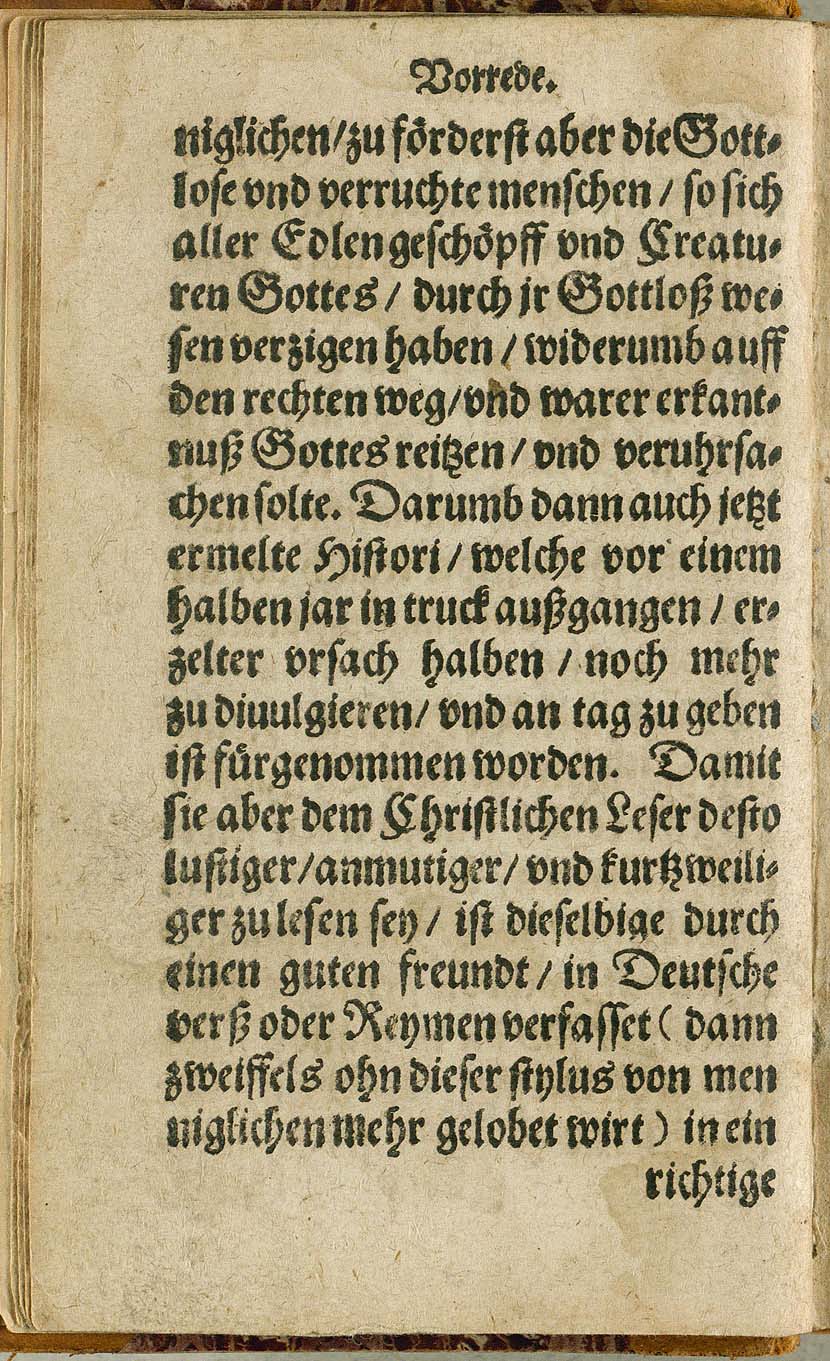 Vorrede.
niglichen/zu förderst aber die Gott⸗
lose vnd verruchte menschen / so sich
aller Edlen geschöpff vnd Creatu⸗
ren Gottes / durch jr Gottloß we⸗
sen verzigen haben / widerumb auff
den rechten weg/vnd warer erkant⸗
nuß Gottes reitzen / vnd veruhrsa⸗
chen solte. Darumb dann auch jetzt
ermelte Histori / welche vor einem
halben jar in truck außgangen / er⸗
zelter vrsach halben / noch mehr
zu diuulgieren/ vnd an tag zu geben
ist fürgenommen worden. Damit
sie aber dem Christlichen Leser desto
lustiger/anmutiger/ vnd kurtzweili⸗
ger zu lesen sey / ist dieselbige durch
einen guten freundt / in Deutsche
verß oder Reymen verfasset ( dann
zweiffels ohn dieser stylus von men
niglichen mehr gelobet wirt ) in ein
richtige